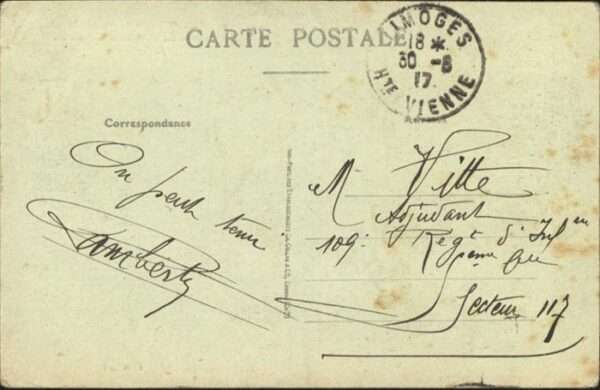 CARTE POSTALE
LIMOGES
18 *
30 - 8
17
HTE VIENNE
Correspondance
On peut tenir
Lamberty
M. Vitte
Adjudant
109e Régt d'Inf.
Secteur 117